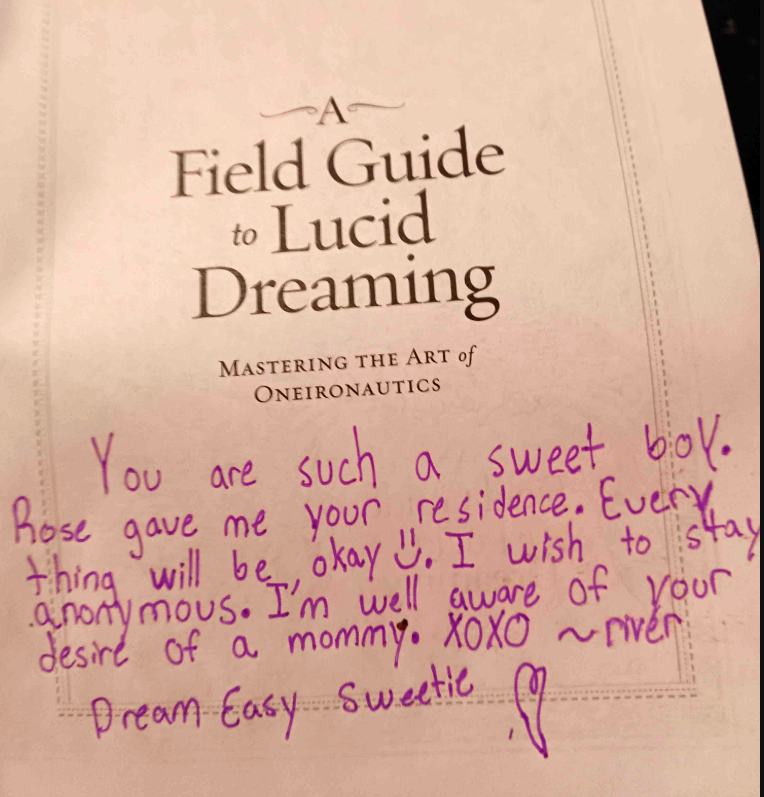 A
Field Guide
to Lucid
Dreaming
MASTERING THE ART of
ONEIRONAUTICS
You are such a sweet boy.
Rose gave me your residence. Every
thing will be, okay :). I wish to stay
anonymous. I'm well aware of your
desire of a mommy. XOXO ~river
Dream Easy Sweetie